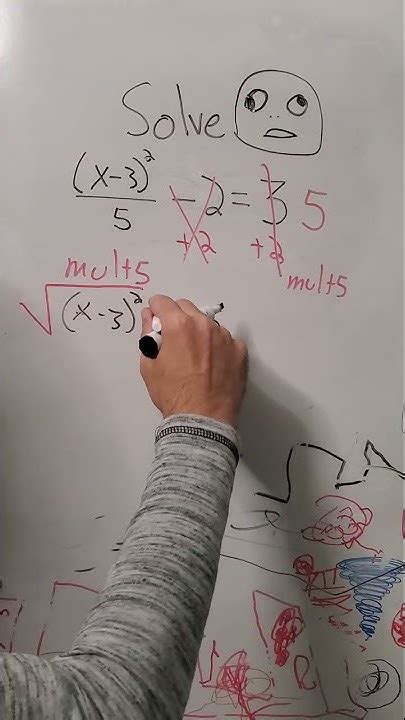 Solve
(x-3)²/5 - 2 = 3 5
+2 +2
mult5 mult5
√(x-3)²
R